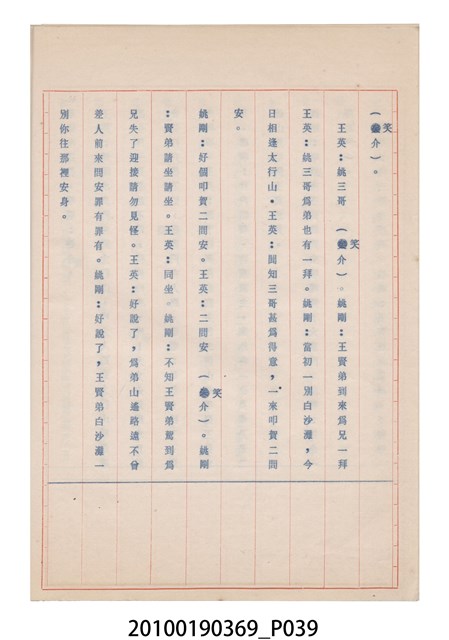 (笑介)。
王英：姚三哥 (笑介)。姚剛：王賢弟到來爲兄一拜
王英：姚三哥爲弟也有一拜。姚剛：當初一別白沙灘，今
日相逢太行山。王英：聞知三哥甚爲得意，一來叩賀二問
安。
姚剛：好個叩賀二問安。王英：二問安 (笑介)。姚剛
：賢弟請坐請坐。王英：同坐。姚剛：不知王賢弟駕到爲
兄失了迎接請勿見怪。王英：好說了，爲弟山遙路遠不曾
差人前來問安罪有罪有。姚剛：好說了，王賢弟白沙灘一
別你往那裡安身。
20100190369_P039